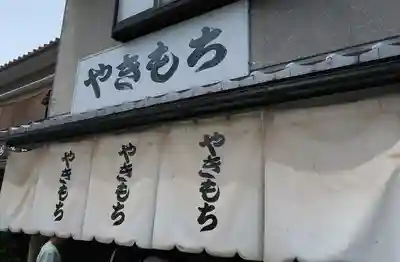 やきもち
やきもち
やきもち
やきもち